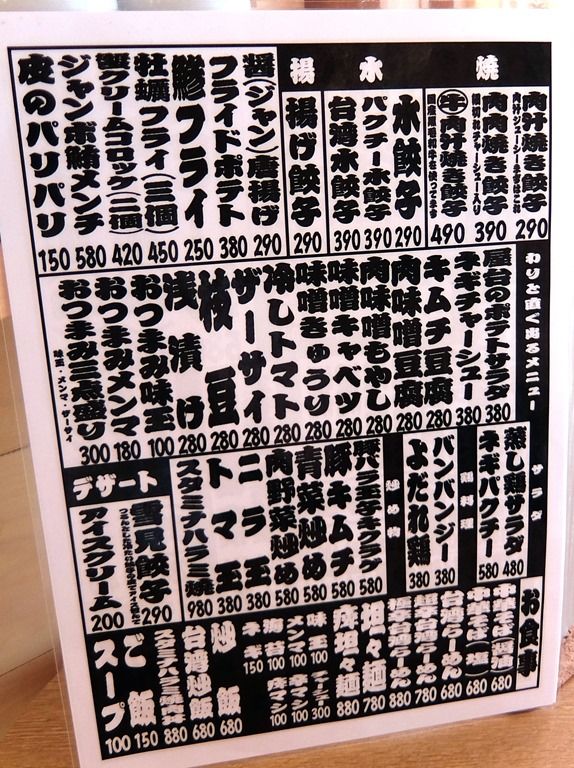 焼
肉汁焼き餃子 290
肉肉焼き餃子 390
牛肉汁焼き餃子 490
水
水餃子 290
パクチー水餃子 390
台湾水餃子 390
揚
揚げ餃子 290
醤(ジャン)唐揚げ 290
フライドポテト 380
鯵フライ 250
牡蠣フライ(三個) 450
蟹クリームコロッケ(二個) 420
ジャンボ鮪メンチ 580
皮のパリパリ 150
わりと直ぐ出るメニュー
屋台のポテトサラダ 380
ネギチャーシュー 380
キムチ豆腐 280
肉味噌豆腐 280
肉味噌もやし 280
味噌キャベツ 280
味噌きゅうり 280
冷しトマト 280
ザーサイ 280
枝豆 280
浅漬け 280
おつまみ味玉 100
おつまみメンマ 180
おつまみ三点盛り 300
味玉・メンマ・ザーサイ
サラダ
蒸し鶏サラダ 480
ネギパクチー 580
鶏料理
バンバンジー 380
よだれ鶏 380
炒め物
豚バラ玉子キクラゲ 580
豚キムチ 580
青菜炒め 580
肉野菜炒め 580
ニラ玉 380
トマ玉 380
スタミナハラミ焼 980
デザート
雪見餃子 290
アイスクリーム 200
お食事
中華そば(醤油) 680
中華そば(塩) 680
台湾らーめん 680
超辛台湾らーめん 780
極辛台湾らーめん 880
坦々麺 780
麻坦々麺 880
味玉 100
メンマ 100
海苔 100
ネギ 150
チャーシュー 300
辛マシ 100
麻マシ 100
炒飯 680
台湾炒飯 680
スタミナハラミ焼肉丼 880
ご飯 150
スープ 100